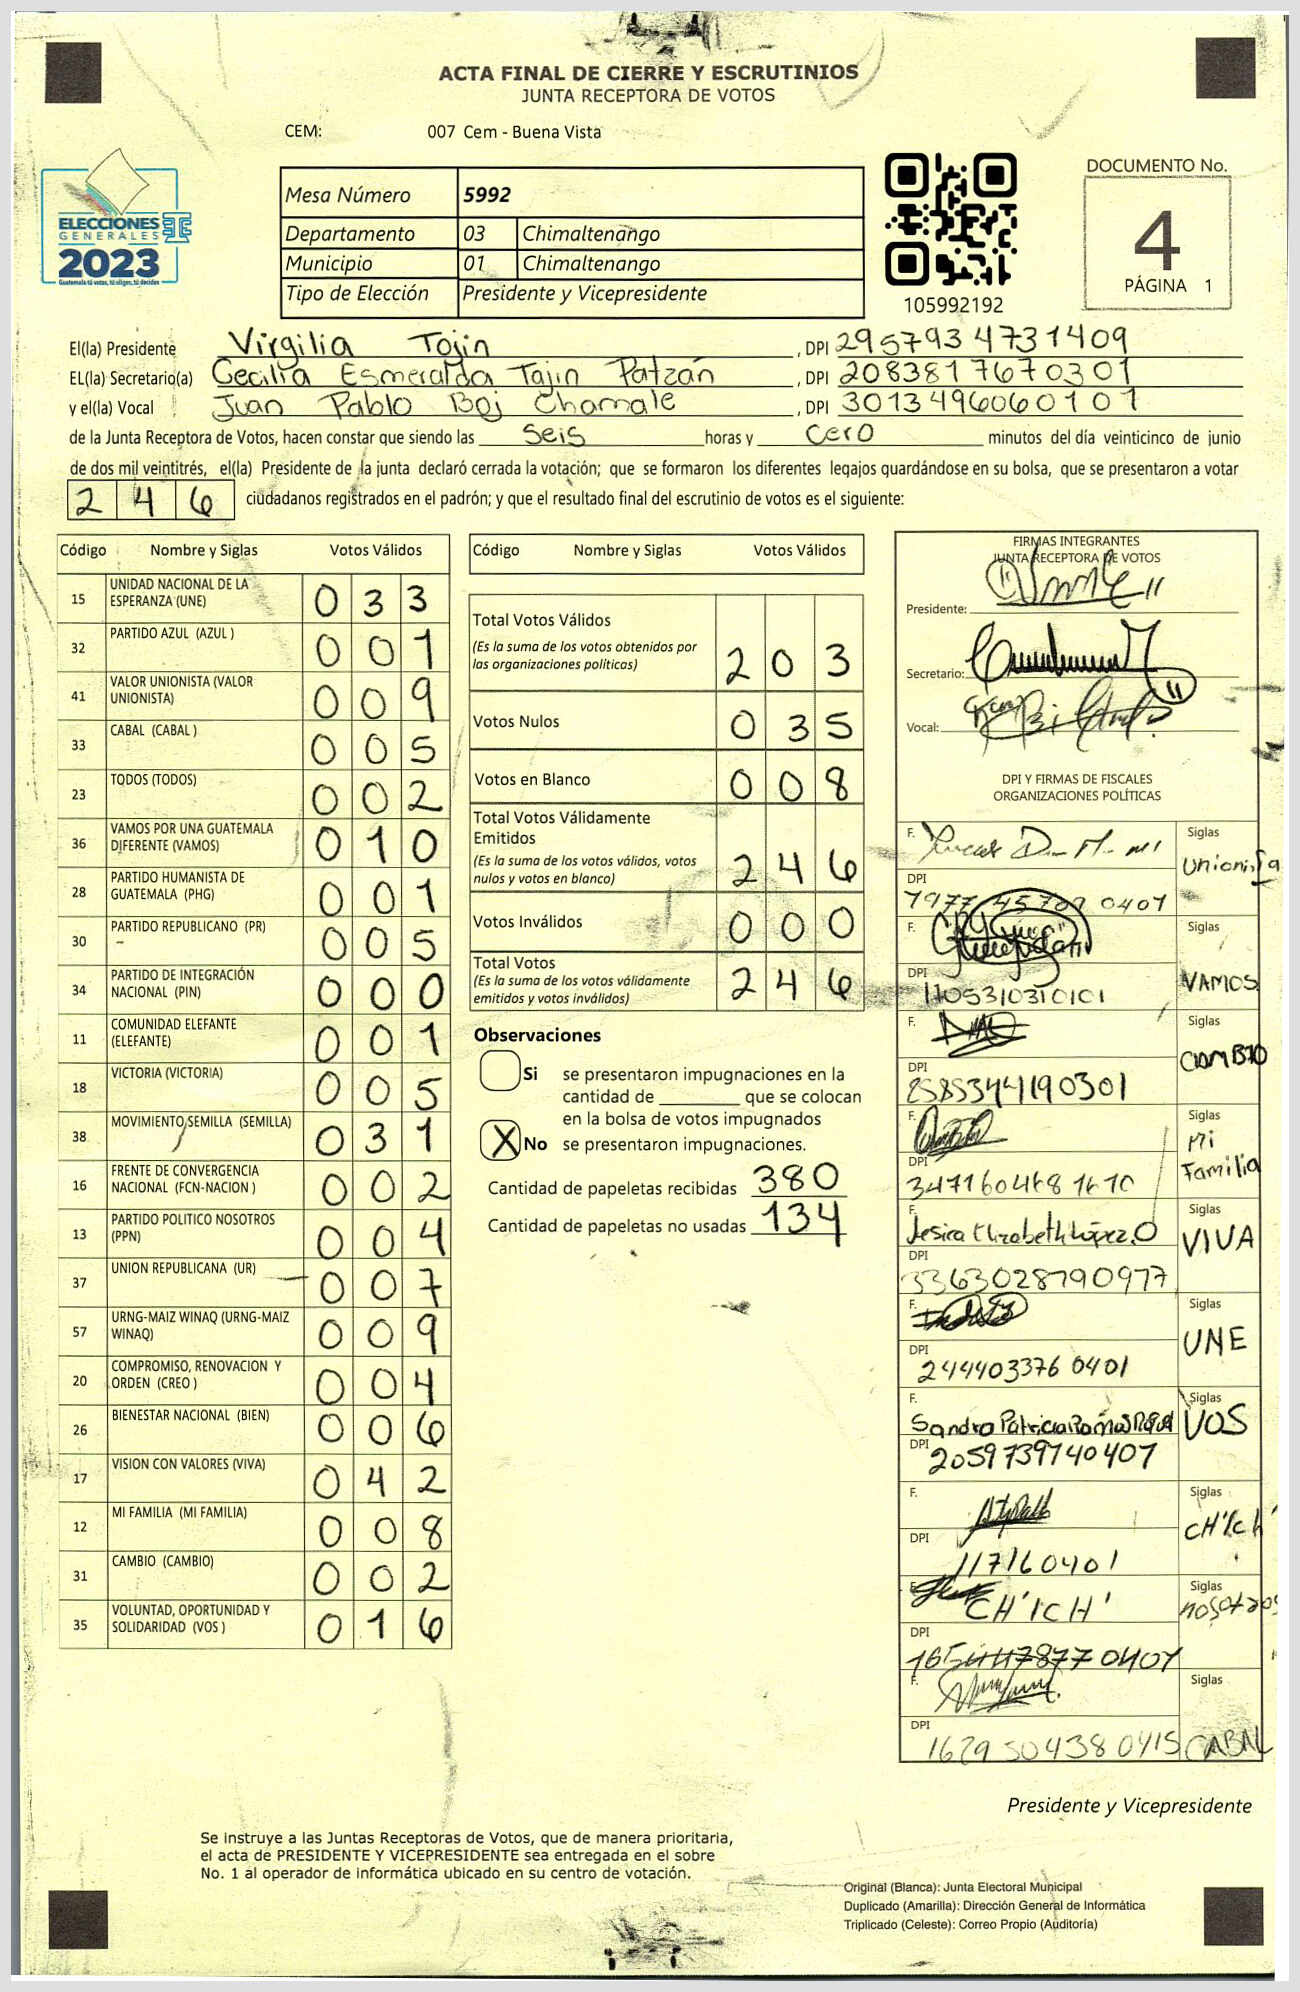 ACTA FINAL DE CIERRE Y ESCRUTINIOS
JUNTA RECEPTORA DE VOTOS
CEM: 007 Cem - Buena Vista
ELECCIONES
GENERALES
2023
Guatemala tú votas, tú eliges, tú decides
TSE
Mesa Número 5992
Departamento 03 Chimaltenango
Municipio 01 Chimaltenango
Tipo de Elección Presidente y Vicepresidente
105992192
DOCUMENTO No.
4
PÁGINA 1
El(la) Presidente Virgilia Tojin, DPI 2957934731409
EL(la) Secretario(a) Cecilia Esmeralda Tajin Patzán, DPI 2083817670301
y el(la) Vocal Juan Pablo Boj Chamale, DPI 3013496060101
de la Junta Receptora de Votos, hacen constar que siendo las seis horas y cero minutos del día veinticinco de junio
de dos mil veintitrés, el(la) Presidente de la junta declaró cerrada la votación; que se formaron los diferentes legajos guardándose en su bolsa, que se presentaron a votar
246 ciudadanos registrados en el padrón; y que el resultado final del escrutinio de votos es el siguiente:
Código Nombre y Siglas Votos Válidos
15 UNIDAD NACIONAL DE LA ESPERANZA (UNE) 033
32 PARTIDO AZUL (AZUL ) 001
41 VALOR UNIONISTA (VALOR UNIONISTA) 009
33 CABAL (CABAL ) 005
23 TODOS (TODOS) 002
36 VAMOS POR UNA GUATEMALA DIFERENTE (VAMOS) 010
28 PARTIDO HUMANISTA DE GUATEMALA (PHG) 001
30 PARTIDO REPUBLICANO (PR) 005
34 PARTIDO DE INTEGRACIÓN NACIONAL (PIN) 000
11 COMUNIDAD ELEFANTE (ELEFANTE) 001
18 VICTORIA (VICTORIA) 005
38 MOVIMIENTO SEMILLA (SEMILLA) 031
16 FRENTE DE CONVERGENCIA NACIONAL (FCN-NACION ) 002
13 PARTIDO POLITICO NOSOTROS (PPN) 004
37 UNION REPUBLICANA (UR) 007
57 URNG-MAIZ WINAQ (URNG-MAIZ WINAQ) 009
20 COMPROMISO, RENOVACION Y ORDEN (CREO ) 004
26 BIENESTAR NACIONAL (BIEN) 006
17 VISION CON VALORES (VIVA) 042
12 MI FAMILIA (MI FAMILIA) 008
31 CAMBIO (CAMBIO) 002
35 VOLUNTAD, OPORTUNIDAD Y SOLIDARIDAD (VOS ) 016
Código Nombre y Siglas Votos Válidos
Total Votos Válidos 203
(Es la suma de los votos obtenidos por
las organizaciones políticas)
Votos Nulos 035
Votos en Blanco 008
Total Votos Válidamente
Emitidos 246
(Es la suma de los votos válidos, votos
nulos y votos en blanco)
Votos Inválidos 000
Total Votos 246
(Es la suma de los votos válidamente
emitidos y votos inválidos)
Observaciones
Si se presentaron impugnaciones en la
cantidad de ________ que se colocan
en la bolsa de votos impugnados
X No se presentaron impugnaciones.
Cantidad de papeletas recibidas 380
Cantidad de papeletas no usadas 134
FIRMAS INTEGRANTES
JUNTA RECEPTORA DE VOTOS
Presidente:
Secretario:
Vocal:
DPI Y FIRMAS DE FISCALES
ORGANIZACIONES POLÍTICAS
F. Siglas Unionista
DPI
F. Siglas VAMOS
DPI
F. Siglas CAMBIO
DPI 2585344190301
F. Siglas Mi Familia
DPI
F. Jesica Elizabeth López.O Siglas VIVA
DPI 3363028790977
F. Siglas UNE
DPI 244403376 0401
F. Sandra Patricia Siglas VOS
DPI 2059739740407
F. Siglas CH'ICH'
DPI 117160401
F. CH'ICH' Siglas nosotros
DPI
F. Siglas CABAL
DPI 1629 50438 0415
Presidente y Vicepresidente
Se instruye a las Juntas Receptoras de Votos, que de manera prioritaria,
el acta de PRESIDENTE Y VICEPRESIDENTE sea entregada en el sobre
No. 1 al operador de informática ubicado en su centro de votación.
Original (Blanca): Junta Electoral Municipal
Duplicado (Amarilla): Dirección General de Informática
Triplicado (Celeste): Correo Propio (Auditoría)